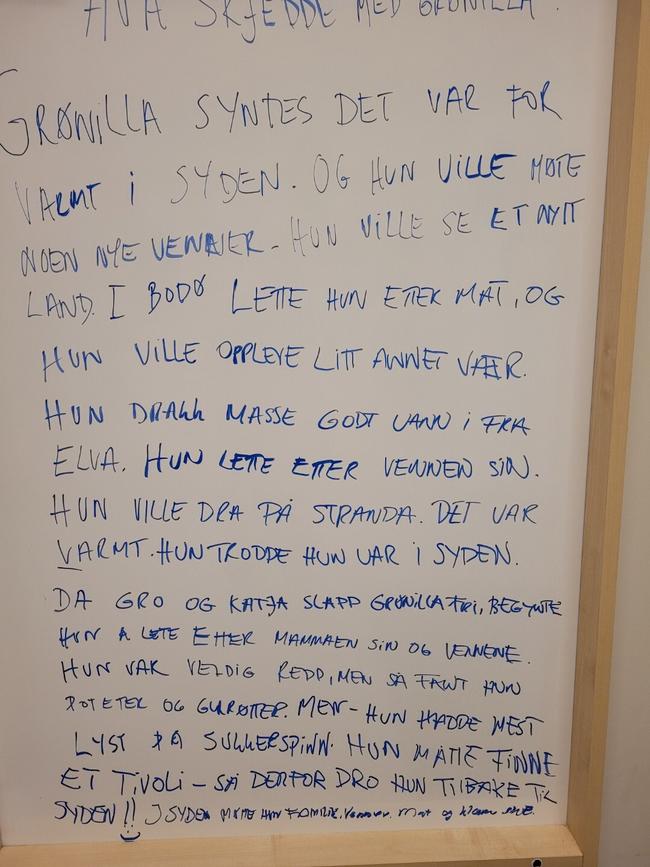 HVA SKJEDDE MED GRØNILLA?
GRØNILLA SYNTES DET VAR FOR
VARMT I SYDEN. OG HUN VILLE MØTE
NOEN NYE VENNER - HUN VILLE SE ET NYTT
LAND. I BODØ LETTE HUN ETTER MAT, OG
HUN VILLE OPPLEVE LITT ANNET VÆR.
HUN DRAKK MASSE GODT VANN I FRA
ELVA. HUN LETTE ETTER VENNEN SIN.
HUN VILLE DRA PÅ STRANDA. DET VAR
VARMT. HUN TRODDE HUN VAR I SYDEN.
DA GRO OG KATJA SLAPP GRØNILLA FRI, BEGYNTE
HUN Å LETE ETTER MAMMAEN SIN OG VENNENE.
HUN VAR VELDIG REDD, MEN SÅ FANT HUN
POTETER OG GULRØTTER. MEN - HUN HADDE MEST
LYST PÅ SUKKERSPINN. HUN MÅTTE FINNE
ET TIVOLI - SÅ DERFOR DRO HUN TILBAKE TIL
SYDEN!! I SYDEN MØTTE HUN FAMILIE, Venner, Mat og